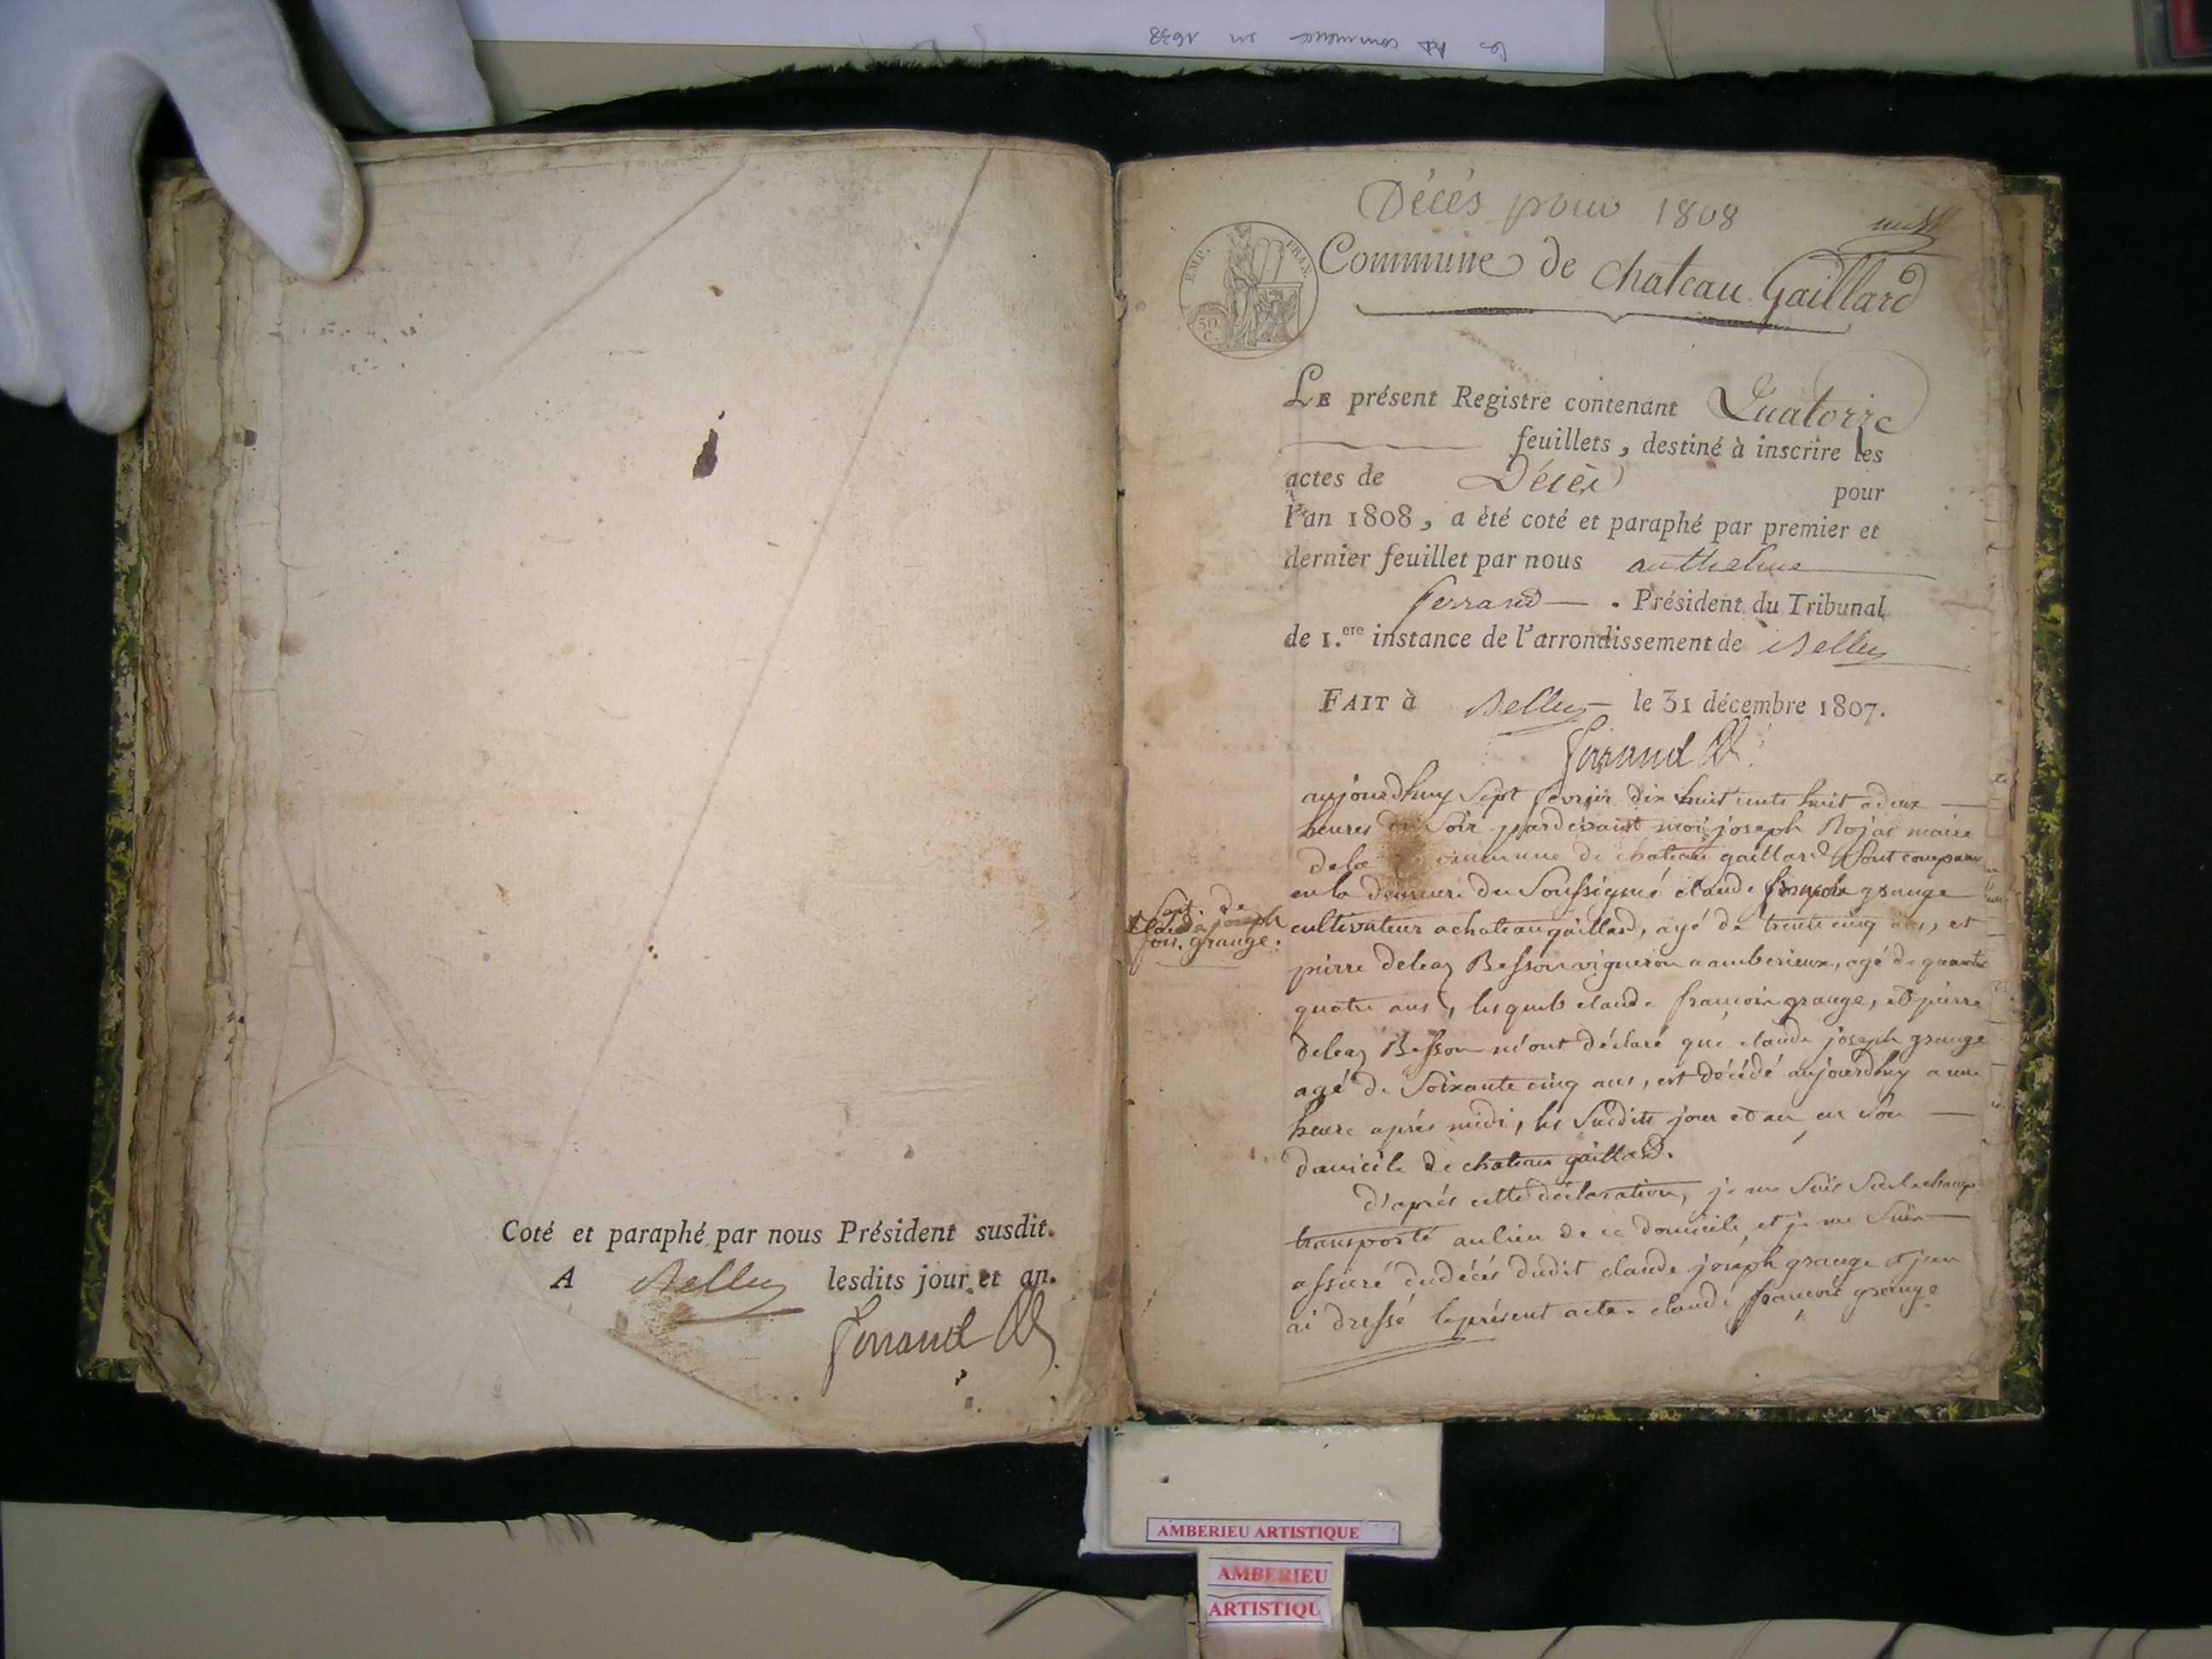 les AD commence en 1638
Coté et paraphé par nous Président susdit.
A Belley lesdits jour et an.
Ferrand
Décès pour 1808
Commune de Chateau Gaillard
EMP. FRAN.
50
C.
LE présent Registre contenant Quatorze
feuillets, destiné à inscrire les
actes de Décès pour
l'an 1808, a été coté et paraphé par premier et
dernier feuillet par nous anthelme
ferrand . Président du Tribunal
de 1.ere instance de l'arrondissement de Belley
FAIT à Belley le 31 décembre 1807.
Ferrand
aujourdhuy Sept fevrier dix huit cents huit a deux
heures du Soir pardevant moi joseph Rojat maire
dela commune de chateau gaillard Sont comparus
en la demeure du Soussigné claude françois grange
cultivateur a chateaugaillard, agé de trente cinq ans, et
pierre deleaz Besson vigneron a amberieux, agé de quarante
quatre ans, lesquels claude françois grange, et pierre
deleaz Besson m'ont déclaré que claude joseph grange
agé de Soixante cinq ans, est décédé aujourdhuy a une
heure aprés midi, les Susdits jour et an en son
domicile de chateau gaillard.
d'aprés cette declaration, je me suis Sur le champ
transporté au lieu de ce domicile, et je me suis
assuré du décés dudit claude joseph grange et j'en
ai dressé le présent acte. claude françois grange
de
claude joseph
grange.
AMBERIEU ARTISTIQUE
AMBERIEU
ARTISTIQU